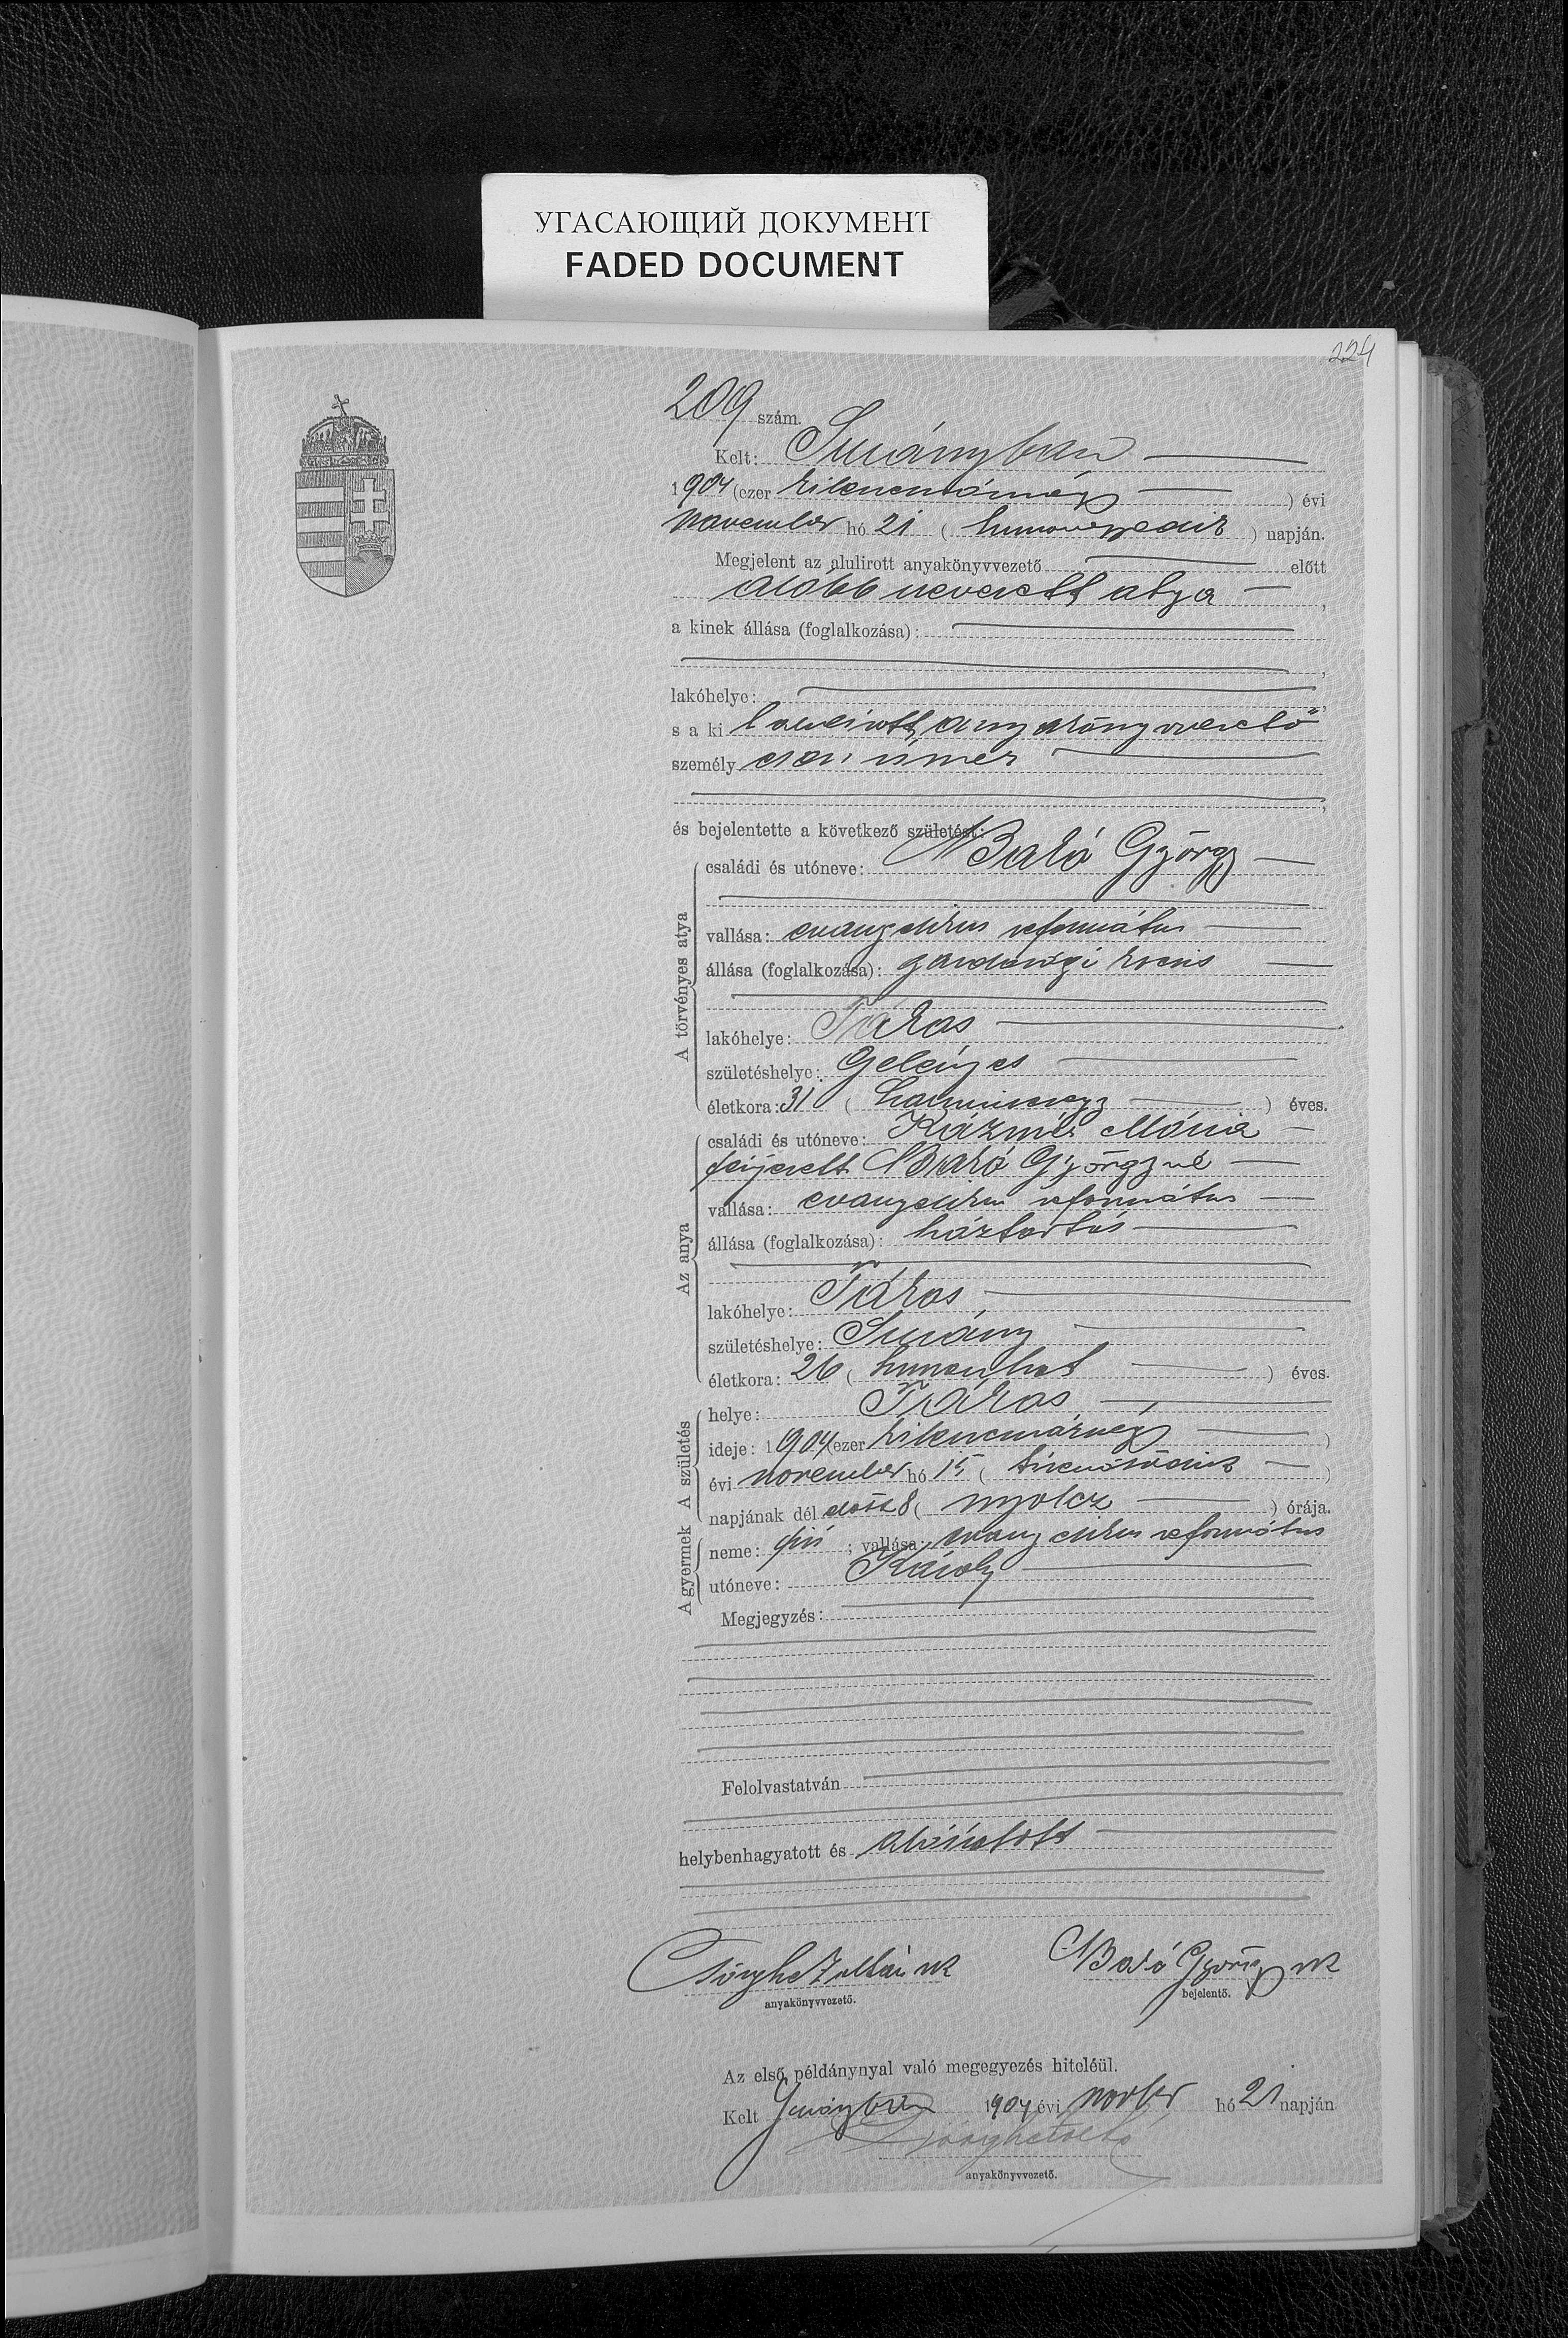 УГАСАЮЩИЙ ДОКУМЕНТ
FADED DOCUMENT
224
209 szám.
Kelt: Surányban
1904 (ezer kilenczszáznégy) évi
november hó 21 ( huszonegyedik ) napján.
Megjelent az alulirott anyakönyvvezető előtt
alább nevezett atya ,
a kinek állása (foglalkozása):
,
lakóhelye: ,
s a ki alulirott anyakönyvvezető
személy
,
és bejelentette a következő születést:
A törvényes atya
családi és utóneve: Bakó György
vallása: evangelikus református
állása (foglalkozása): gazdasági kocsis
lakóhelye: Tákos
születéshelye: Gelényes
életkora: 31 ( harminczegy ) éves.
Az anya
családi és utóneve: Kázmér Mária
férjezett Bakó Györgyné
vallása: evangelikus református
állása (foglalkozása): háztartás
lakóhelye: Tákos
születéshelye: Surány
életkora: 26 ( huszonhat ) éves.
A születés
helye: Tákos
ideje: 1904 (ezer kilenczszáznégy )
évi november hó 15 ( tizenötödik )
napjának dél előtt 8 ( nyolcz ) órája.
A gyermek
neme: fiú ; vallása: evangelikus református
utóneve: Károly
Megjegyzés:
Felolvastatván
helybenhagyatott és aláiratott
Zoltán sk
anyakönyvvezető.
Bakó György sk
bejelentő.
Az első példánynyal való megegyezés hiteléül.
Kelt Surányban 1904 évi novber hó 21 napján
anyakönyvvezető.